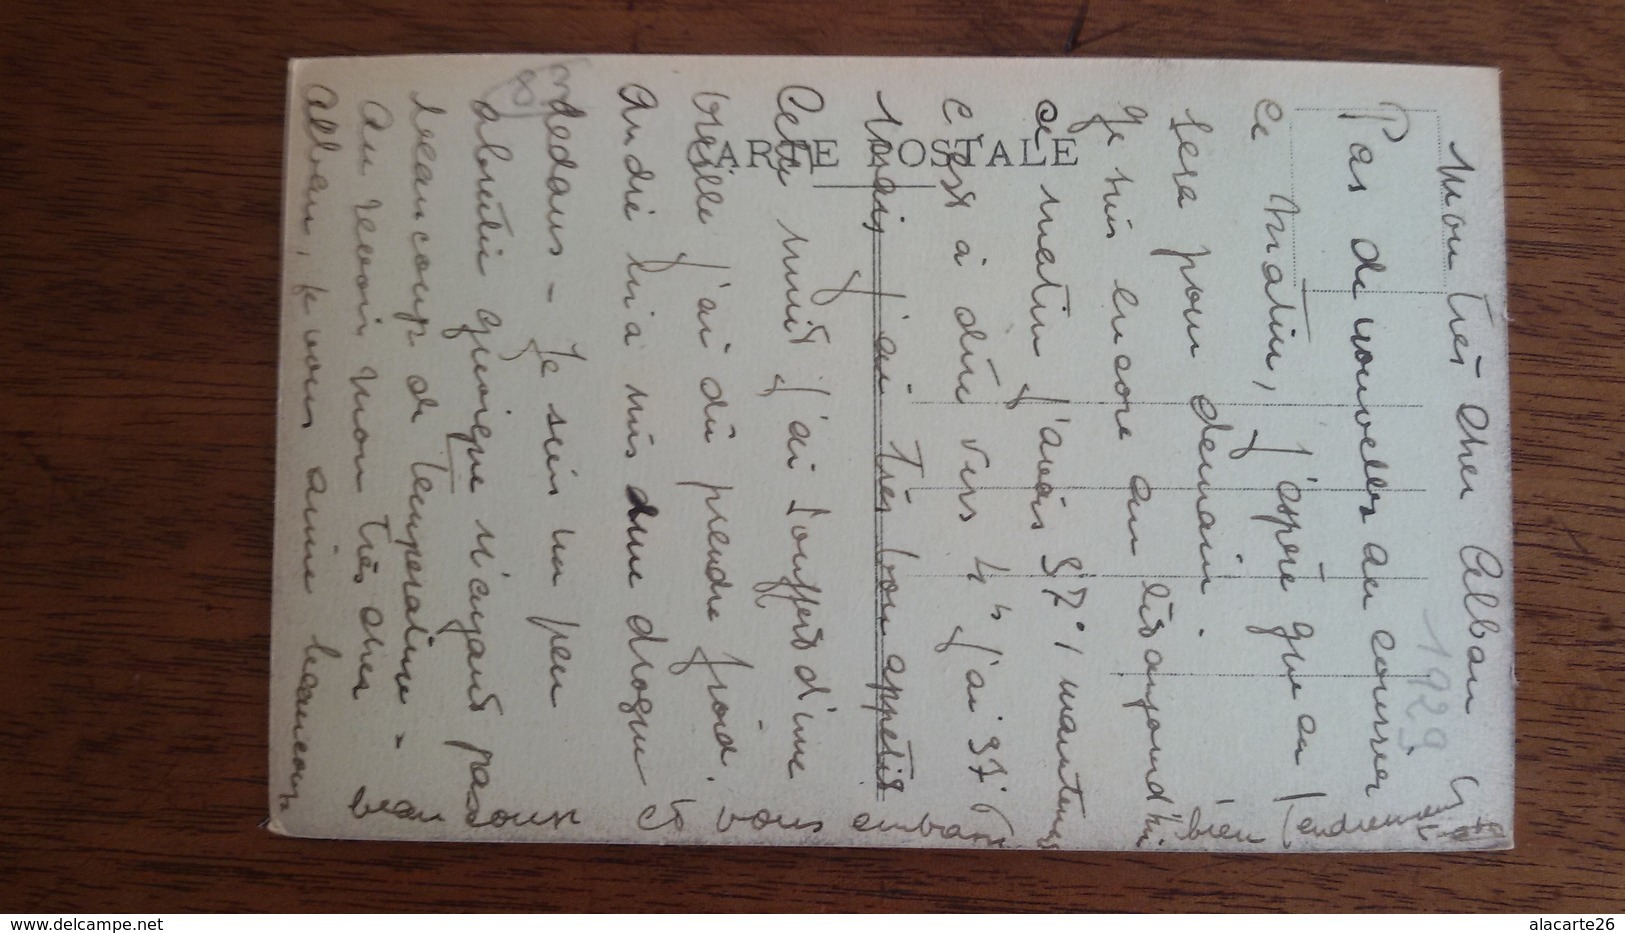 Mon très cher Alban
1929
Pas de nouvelles au courrier
ce matin, j'espère que ça
sera pour demain.
Je suis encore au lit aujourd'hui
ce matin j'avais 37°1 maintenant
c'est à dire vers 4h j'ai 37°6
mais j'ai très bon appétit
Cette nuit j'ai souffert d'une
oreille j'ai dû prendre froid.
André lui a mis une drogue
dedans - Je suis un peu
abrutie quoique n'ayant pas
beaucoup de température -
Au revoir mon très cher
Alban, je vous aime beaucoup
beaucoup et vous embrasse
bien tendrement
CARTE POSTALE
www.delcampe.net
alacarte26